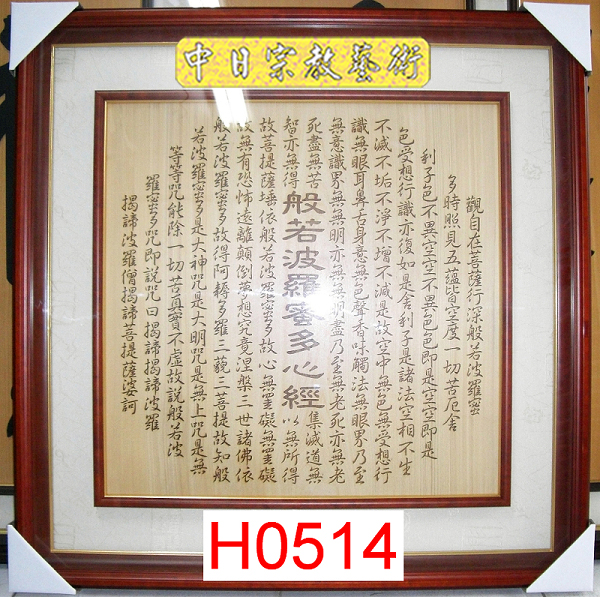 中日宗教藝術
觀自在菩薩行深般若波羅蜜
多時照見五蘊皆空度一切苦厄舍
利子色不異空空不異色色即是空空即是
色受想行識亦復如是舍利子是諸法空相不生
不滅不垢不淨不增不減是故空中無色無受想行
識無眼耳鼻舌身意無色聲香味觸法無眼界乃至
無意識界無無明亦無無明盡乃至無老死亦無老
死盡無苦集滅道無
般若波羅蜜多心經
智亦無得以無所得
故菩提薩埵依般若波羅蜜多故心無罣礙無罣礙
故無有恐怖遠離顛倒夢想究竟涅槃三世諸佛依
般若波羅蜜多故得阿耨多羅三藐三菩提故知般
若波羅蜜多是大神咒是大明咒是無上咒是無
等等咒能除一切苦真實不虛故說般若波
羅蜜多咒即說咒曰揭諦揭諦波羅
揭諦波羅僧揭諦菩提薩婆訶
H0514